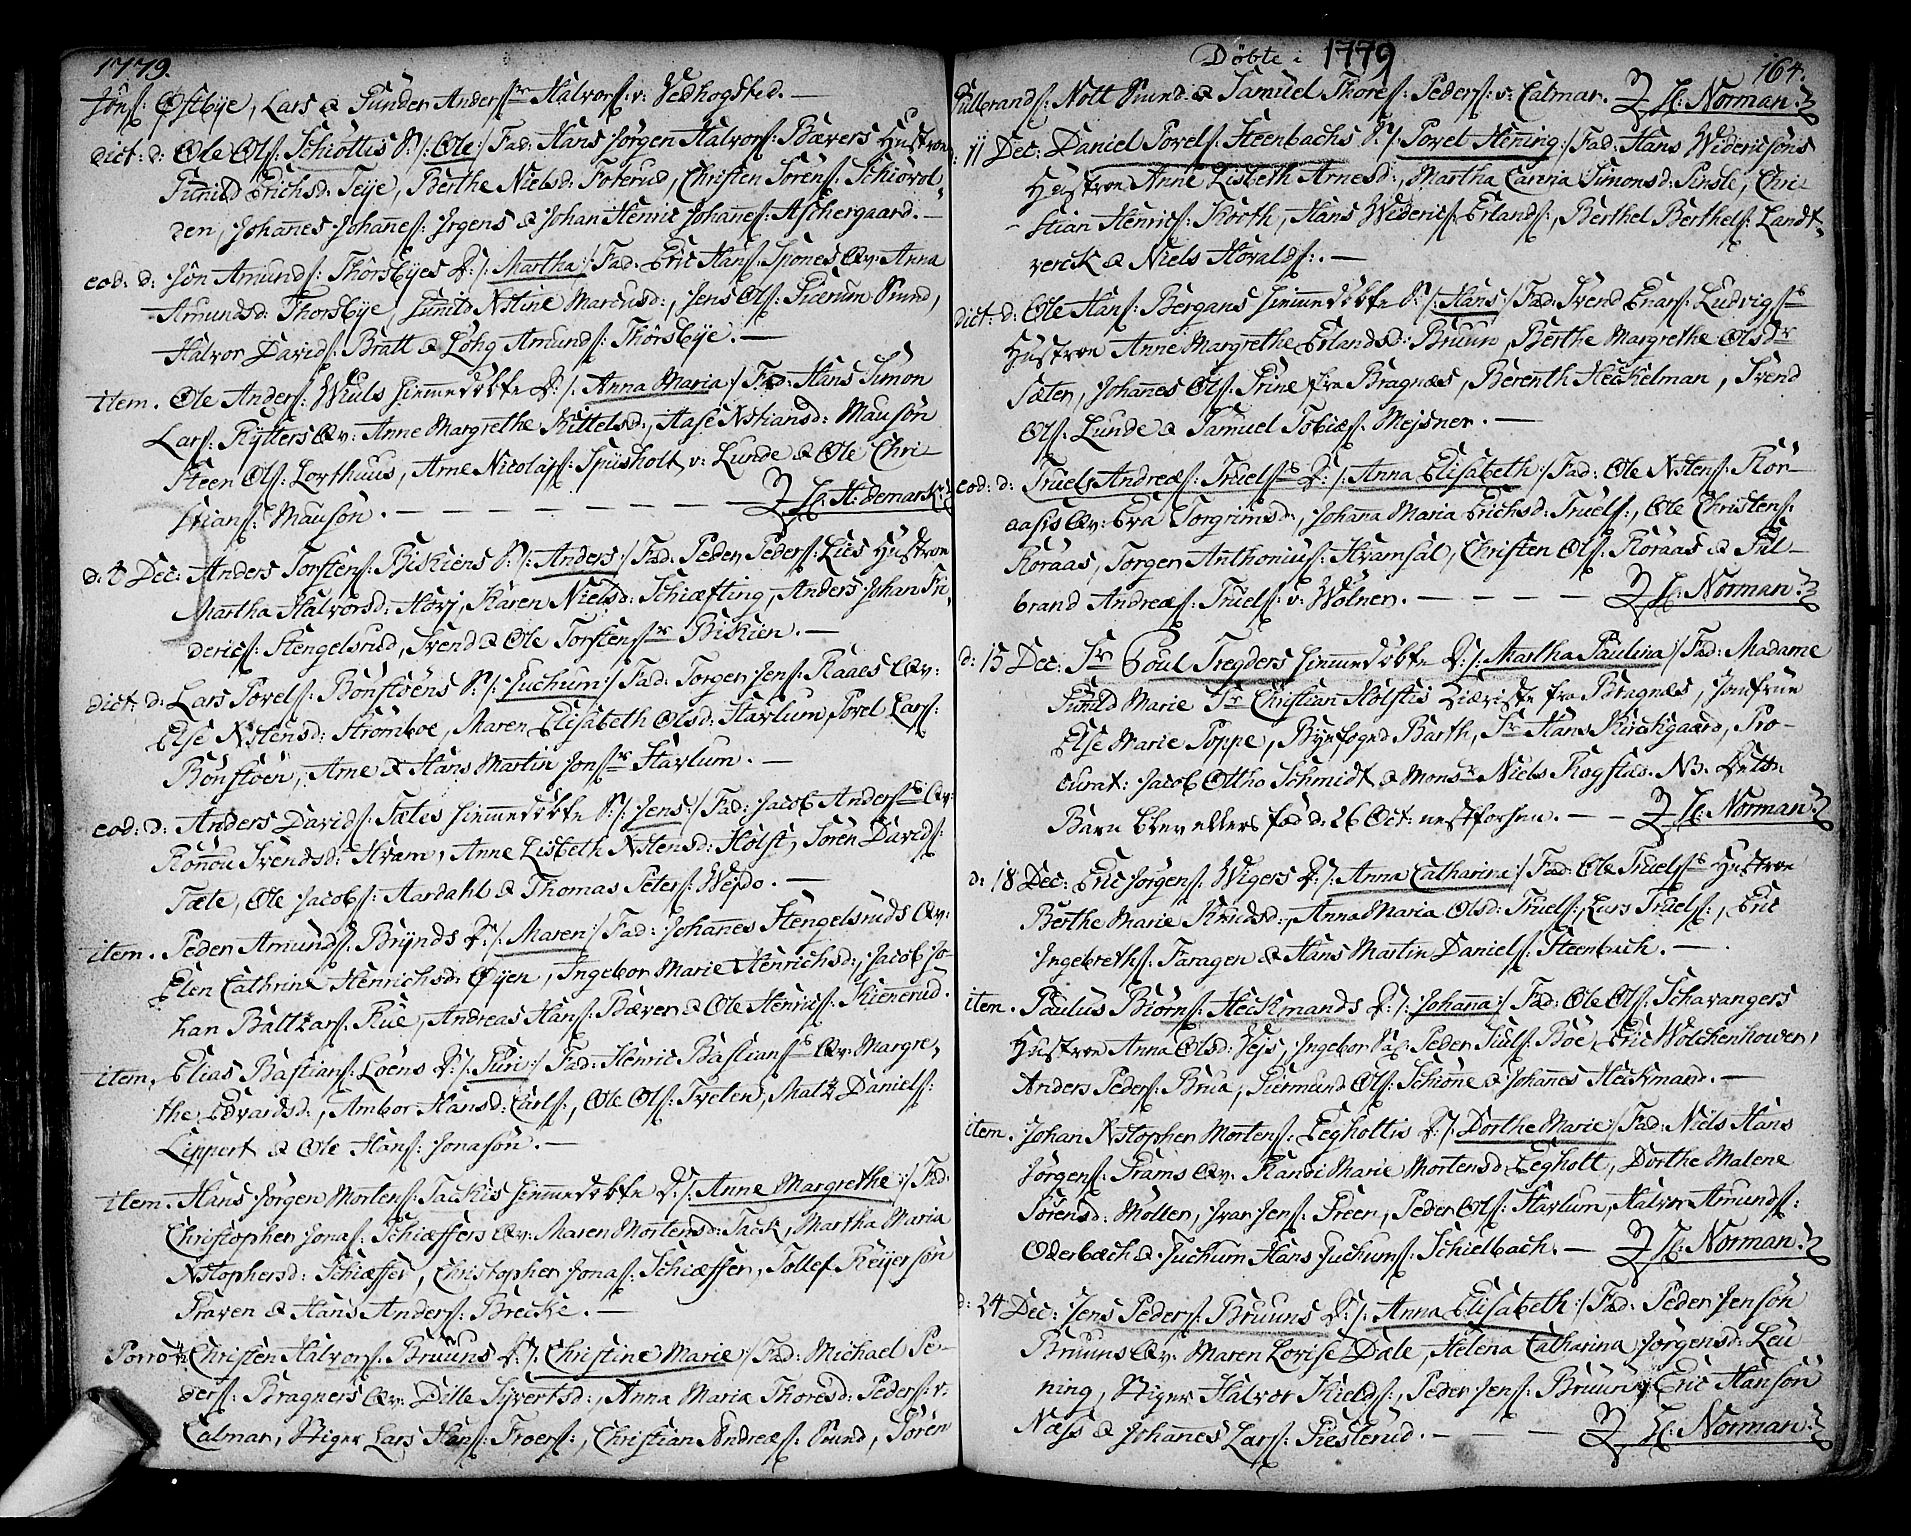 1779.
Jons: Østbye, Lars & Gunder Anders:r Halvors: v: Vedhogsted. —
dict: d: Ole Ols: Schiøttis S: /: Ole :/ Fad: Hans Jørgen Halvors: Bævers Hustroe
Gunild Erichsd: Teije, Berthe Nielsd: Foterud, Christen Sørens: Schiørvol-
den, Johannes Johannes: Jrgens & Johan Henric Johannes: Aschergaard. —
eod: d: Jon Amunds: Thorsbyes D: /: Martha :/ Fad: Eric Hans: Spones Qv: Anna
Amundsd: Thorsbye, Gunild Xstine Marcusd:, Jens Ols: Gierum Grund,
Halvor Davids: Bratt & Løhg Amunds: Thorsbye. —
item. Ole Anders: Wiuls hiemmedøbte D: /: Anna Maria :/ Fad: Hans Simon
Lars: Rytters Qv: Anne Margrethe Kittelsd:, Aase Xstiansd: Mausøn
Steen Ols: Lorthuus, Arne Nicolajs: Spiisholt v: Lunde & Ole Chri-
stians: Mausøn. — — — — — — H. Hidemark.
d: 8 Dec: Anders Torstens: Biskiens S: /: Anders :/ Fad: Peder Peders: Lies Hustroe
Martha Halvorsd: Horj, Karen Nielsd: Schiæfting, Anders Johan Fri-
derics: Stengelsrud, Svend & Ole Torstens:r Biskien. —
dict: d: Lars Povels: Bonstøens S: /: Juchum :/ Fad: Torgen Jens: Raaes Qv:
Else Xstensd: Strømboe, Maren Elisabeth Olsd: Havlum, Povel Lars:
Bonstøen, Arne & Hans Martin Jons:r Havlum. —
eod: d: Anders Davids: Fætes hiemmedøbte S: /: Jens :/ Fad: Jacob Anders:s Qv:
Ronnou Svendsd: Hvam, Anne Lisbeth Xstensd: Holst, Søren Davids:
Fæte, Ole Jacobs: Aardahl & Thomas Peters: Wejdo. —
item. Peder Amunds: Brynds D: /: Maren :/ Fad: Johannes Stengelsruds Qv:
Elen Cathrine Henrichsd: Øyen, Ingebor Marie Henrichsd:, Jacob Jo-
han Baltzars: Rue, Andreas Hans: Bæver & Ole Henrics: Kiennerud.
item. Elias Bastians: Loens D: /: Guri :/ Fad: Henric Bastians:s Qv: Margre-
the Edvardsd:, Ambor Hansd: Carls:, Ole Ols: Tvelen, Matz Daniels:
Lippert & Ole Hans: Jonasøn. —
item. Hans Jørgen Mortens: Tackis hiemmedøbte D: /: Anne Margrethe :/ Fad:
Christopher Jonas: Schiæffers Qv: Maren Mortensd: Tack, Martha Maria
Xstophersd: Schiæffer, Christopher Jonas: Schiæffer, Tollef Reijersøn
Praven & Hans Anders: Brecke. —
Porro Christen Halvors: Bruuns D: /: Christine Marie :/ Fad: Michael Pe-
ders: Bragners Qv: Dille Syvertsd:, Anna Maria Thoresd: Peders: v:
Calmar, Stiger Lars Hans: Froers:, Christian Andreæs: Grund, Søren
Døbte i 1779 164.
Gulbrands: Nott Grund & Samuel Thores: Peders: v: Calmar. H: Norman.
d: 11 Dec: Daniel Povels: Steenbachs S: /: Povel Hening :/ Fad: Hans Widericsøns
Hustroe Anne Lisbeth Arnesd:, Martha Carina Simonsd: Pinsle, Chri-
stian Henrics: Korth, Hans Widerics: Erlands:, Berthel Berthels: Landt-
verck & Niels Hovalds: —
dict: d: Ole Hans: Bergans hiemmedøbte S: /: Hans :/ Fad: Svend Enars: Ludvigs:s
Hustroe Anne Margrethe Erlandsd: Bruun, Berthe Margrethe Olsdr
Sæter, Johannes Ols: Prine fra Bragnæs, Berenth Heckelman, Svend
Ols: Lunde & Samuel Tobiæs: Mejsner. —
eod: d: Truels Andreæs: Truels:s D: /: Anna Elisabeth :/ Fad: Ole Xstens: Ror-
aasis Qv: Eva Torgrimsd:, Johana Maria Erichsd: Truels:, Ole Christens:
Roraas, Torger Anthonius: Hvamsal, Christen Ols: Roraas & Gul-
brand Andreæs: Truels: v: Wolner. — — — — H: Norman.
d: 15 Dec: Sr Poul Tregders hiemmedøbte D: /: Martha Paulina :/ Fad: Madame
Gunild Marie Sr Christian Holstis Kiæriste fra Bragnæs, Jomfrue
Else Marie Poppe, Byefogd Barth, Sr Hans Kirckgaard, Pro-
curat: Jacob Ottho Schmidt & Monsr Niels Rogstad. NB. Dette
Barn blev ellers fød d: 26 Oct: nestforhen. — — H: Norman.
d: 18 Dec: Eric Jørgens: Wigers D: /: Anna Catharina :/ Fad: Ole Truels:s Hustroe
Berthe Marie Knudsd:, Anna Maria Olsd: Truels:, Lars Truels:, Eric
Ingebreths: Faragen & Hans Martin Daniels: Steenbach. —
item. Paulus Biørns: Heckmands D: /: Johanna :/ Fad: Ole Ols: Schavangers
Hustroe Anna Olsd: Vejs, Ingebor Peder Siuls: Boe, Eric Wolchenhower,
Anders Peders: Brua, Giermund Ols: Schione & Johanes Heckmand. —
item. Johan Xstopher Mortens: Eegholtis D: /: Dorthe Marie :/ Fad: Niels Hans
Jørgens: Prams Qv: Randi Marie Mortensd: Eegholt, Dorthe Malene
Sørensd: Møller, Jvar Jens: Preen, Peder Ols: Havlum, Halvor Amunds:
Oderbæch & Juchum Hans Juchums: Schielbach. — H: Norman.
d: 24 Dec: Jens Peders: Bruuns D: /: Anna Elisabeth :/ Fad: Peder Jensøn
Bruuns Qv: Maren Lovise Dale, Helena Catharina Jørgensd: Leu
ning, Stiger Halvor Kields:, Peder Jens: Bruun, Eric Hansøn
Næss & Johanes Lars: Gieslerud. — — — H: Norman.